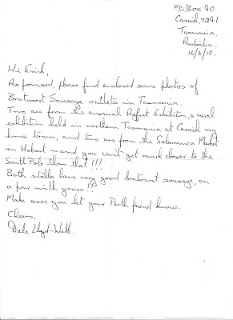 P.O. Box 90
Carrick, 7291
Tasmania,
Australia.
Hi Erich,
As promised, please find enclosed some photos of
Bratwurst Sausage outlets in Tasmania.
Two are from the annual Agfest Exhibition, a rural
exhibition held in northern Tasmania at Carrick my
home town, and two are from the Salamanca Market
in Hobart — and you can't get much closer to the
South Pole than that !!!
Both stalls have very good bratwurst sausage, on
a par with yours !!
Make sure you let your Perth friend know.
Cheers,
Dale